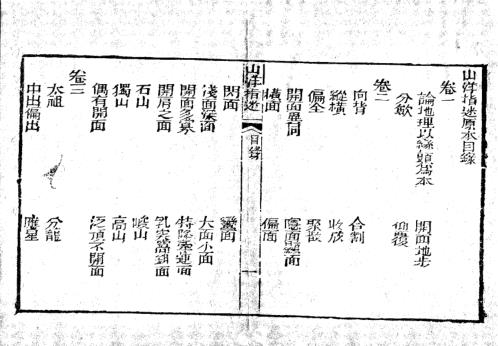 山洋指迷原本目錄
卷一
論地理以巒頭為本　開面地步
分斂　仰覆
卷二
向背　合割
縱橫　收放
偏全　聚散
開面異同　隱面顯面
橫面　偏面
山洋指迷
目錄
一
閃面
淺面深面　大面小面
開面多寡　特降牽連面
開肩之面
石山　峻山
獨山　高山
偶有開面　泛頂不開面
卷三
太祖　分龍
中出偏出　應星